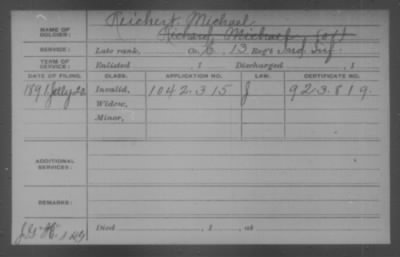 Reichert, Michael
NAME OF SOLDIER: Richard, Michael
SERVICE: Late rank, Co. 13 Reg't Ind Inf
TERM OF SERVICE: Enlisted , 1 Discharged , 1
DATE OF FILING. CLASS. APPLICATION NO. LAW. CERTIFICATE NO.
1891 July Invalid, 1042.315 J 923.819
Widow,
Minor,
ADDITIONAL SERVICES:
REMARKS:
Died , 1 , at